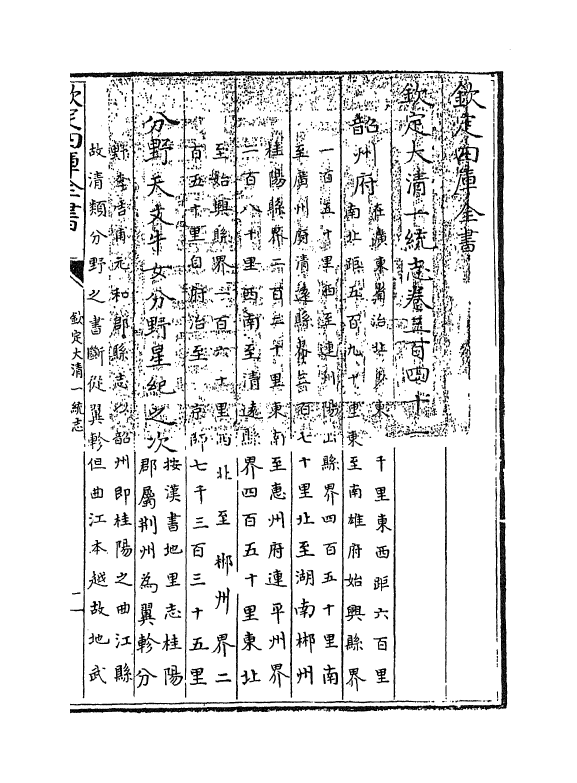 欽定四庫全書
欽定大清一統志卷三百四十一
韶州府
在廣東省治北東千里東西距六百里
南北距五百九十里東至南雄府始興縣界
一百五十里西至連州陽山縣界四百五十里南
至廣州府清遠縣界二百七十里北至湖南郴州
桂陽縣界二百三十里東南至惠州府連平州界
二百八十里西南至清遠縣界四百五十里東北
至始興縣界一百六十里西北至郴州界二
百五十里自府治至京師七千三百三十五里
分野天文牛女分野星紀之次
按漢書地里志桂陽
郡屬荆州為翼軫分
野李吉甫元和郡縣志以韶州即桂陽之曲江縣
故清類分野之書斷從翼軫但曲江本越故地武
欽定四庫全書
欽定大清一統志
一